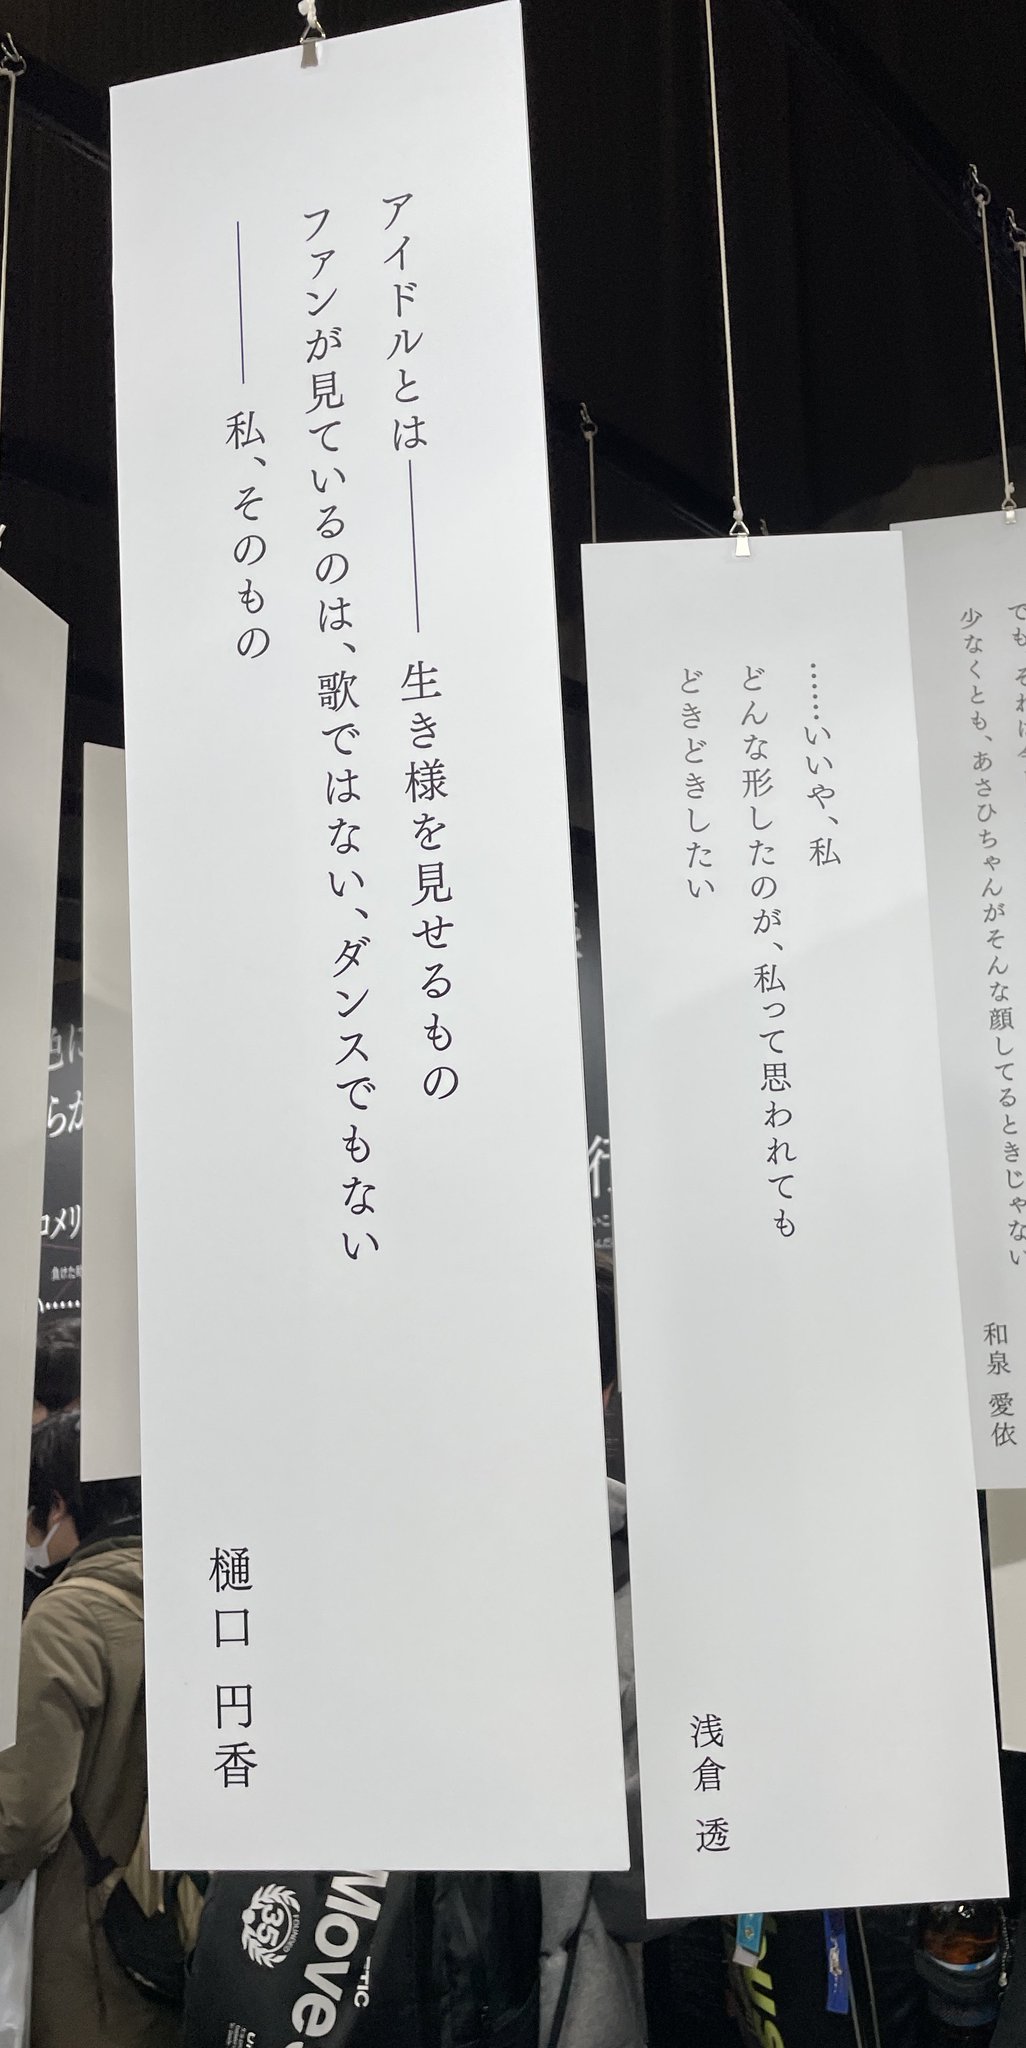 アイドルとは――生き様を見せるもの
ファンが見ているのは、歌ではない、ダンスでもない
――私、そのもの
樋口 円香
……いいや、私
どんな形したのが、私って思われても
どきどきしたい
浅倉 透
でも
少なくとも、あさひちゃんがそんな顔してるときじゃない
和泉 愛依
色に
らか
コメリ
負けた
い……
行
Move
35